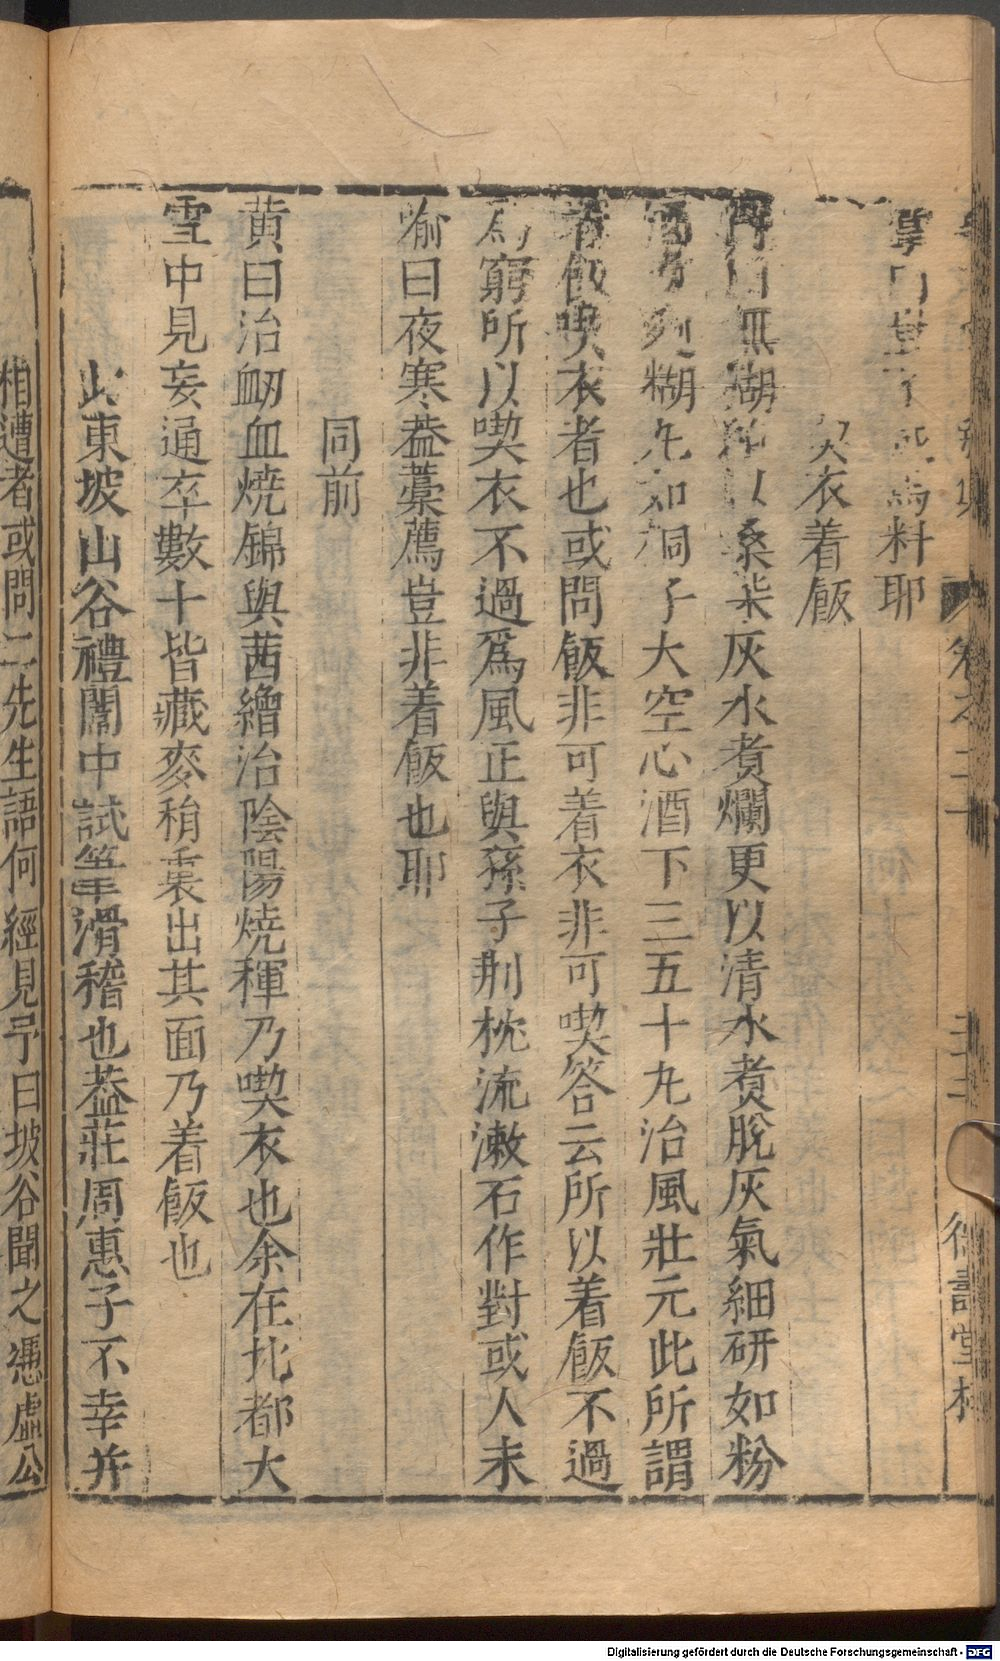 卷之二十
料耶
衣着飯
無糊以桑柴灰水煮爛更以清水煮脫灰氣細研如粉
糊丸如桐子大空心酒下三五十丸治風壯元此所謂
着飯喫衣者也或問飯非可着衣非可喫答云所以着飯不過
爲窮所以喫衣不過爲風正與孫子荆枕流漱石作對或人未
喻曰夜寒葢藁薦豈非着飯也耶
同前
黄曰治衂血燒錦與茜繒治陰陽燒裈乃喫衣也余在北都大
雪中見妄通卒數十皆藏麥稍裏出其面乃着飯也
此東坡山谷禮闈中試筆滑稽也葢莊周惠子不幸并
相遭者或問二先生語何經見予曰坡谷聞之馮虛公
Digitalisierung gefördert durch die Deutsche Forschungsgemeinschaft - DFG